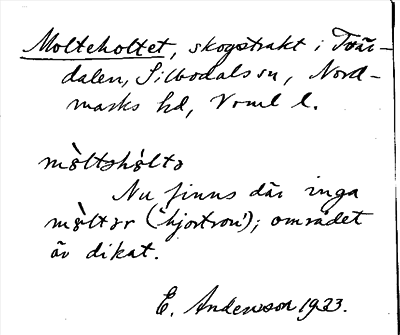 Molteholtet, skogstrakt i Tvär-
dalen, Silbodals sn, Nord-
marks hd, Verml l.
mò̀ltəhò̀ltə
Nu finns där inga
mò̀ltər ('hjortron'); området
är dikat.
E. Andersson 1923.